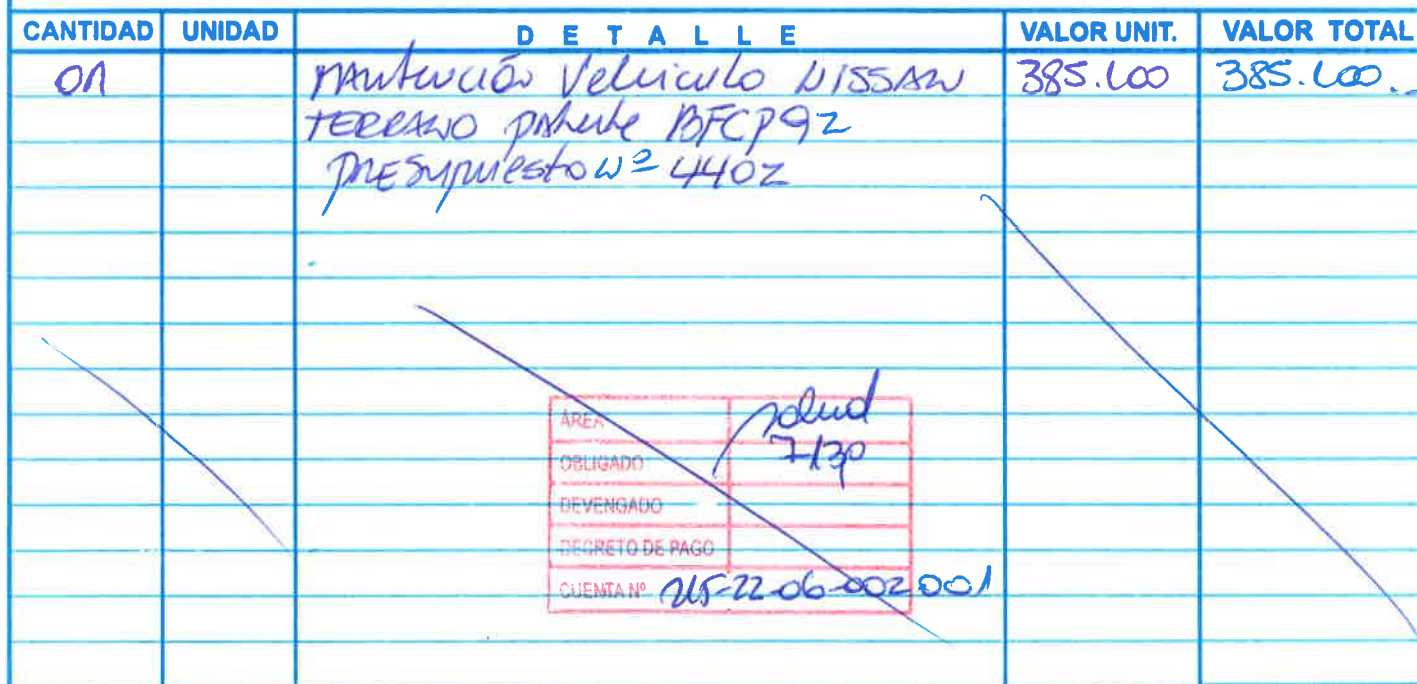 CANTIDAD UNIDAD DETALLE VALOR UNIT. VALOR TOTAL
01 Mantención Vehiculo NISSAN 385.600 385.600.-
TERRANO patente BFCP92
Presupuesto Nº 4402
AREA salud
OBLIGADO 7/30
DEVENGADO
DECRETO DE PAGO
CUENTA Nº 215-22-06-002 001